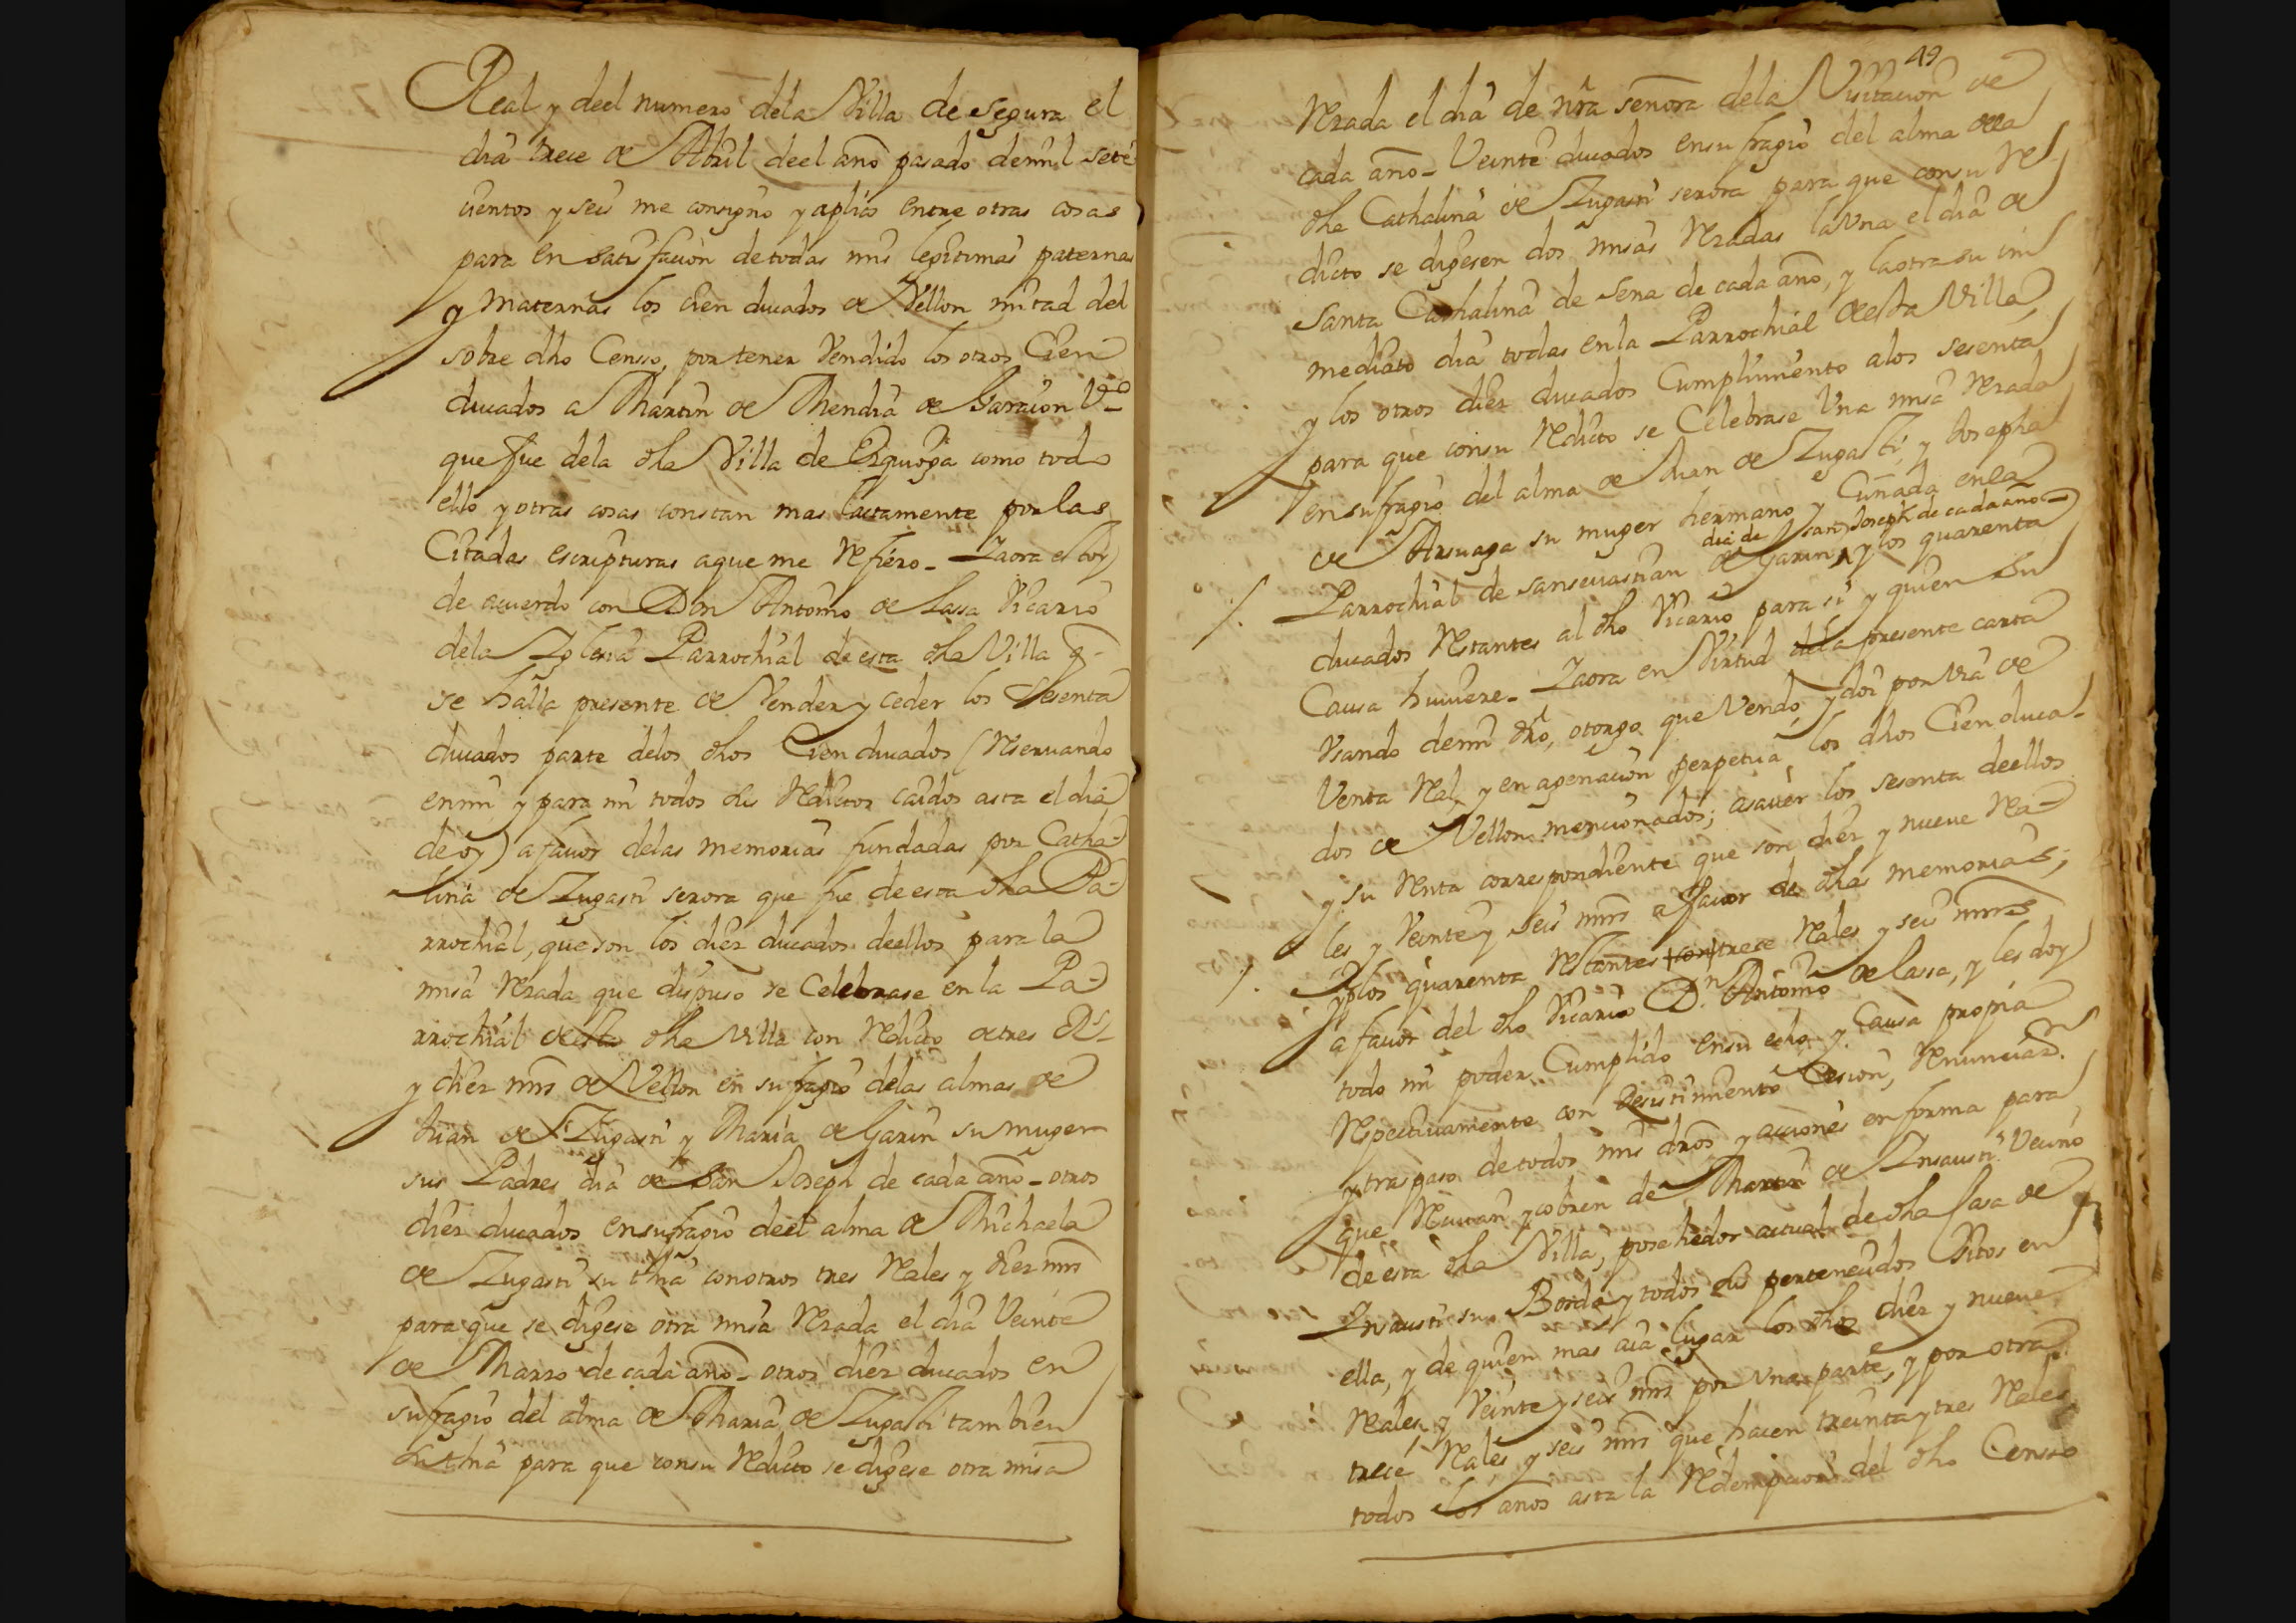 Real y deel numero dela Villa de Segura el
dia trece de Abril deel año pasado demil sete
cientos y seis me consigno y aplico entre otras cosas
para en satisfacion de todas mis legitimas paternas
y maternas los cien ducados de Vellon mitad del
sobre dho Censso, por tener Vendido los otros Cien
ducados a Martin de Mendia de Garacion Vº
que fue dela dha Villa de Ezquioga como todo
ello y otras cosas constan mas lactamente por las
Citadas escripturas aque me Refiero_ Y aora estoy
de acuerdo con Don Antonio de Lassa Vicario
dela Yglesia Parrochial de esta dha Villa q
se halla presente de Vender y ceder los Sesenta
ducados parte delos dhos Cien ducados (Reseruando
enmi y para mi todos sus Reditos caidos asta el dia
de oy) a fauor delas memorias fundadas por Catha-
lina de Zugasti serora que fue de esta dha Pa-
rrochial, que son los diez ducados deellos para la
misa Rezada que dispuso se Celebrase en la Pa-
rrochial desta dha Villa con Redicto de tres Rs
y diez mrs de Vellon en sufragio delas almas de
Juan de Zugasti y Maria de Garin su muger
sus Padres dia de San Joseph de cada año_ otros
diez ducados ensufragio deel alma de Michaela
de Zugasti su thia con otros tres Reales y diez mrs
para que se digese otra misa Rezada el dia Veinte
de Marzo de cada año_ otros diez ducados en
sufragio del alma de Maria de Zugasti tambien
su thia para que consu Redicto se digese otra misa
49
Rezada el dia de nra señora dela Visitacion de
cada año_ Veinte ducados ensufragio del alma dela
dha Cathalina de Zugasti serora para que consu Re
dicto se digesen dos misas Rezadas la Una el dia de
Santa Cathalina de Sena de cada año, y la otra su im
mediato dia todas enla Parrochial desta Villa,
y los otros diez ducados Cumplimento alos sesenta
para que consu Redicto se Celebrase Una misa Rezada
ensufragio del alma de Juan de Zugasti, y Josepha
de Arsuaga su muger hermano y Cuñada enla
dia de san Joseph de cada año
Parrochial de san seuastian de Garin, y los quarenta
ducados Restantes al dho Vicario para si y quien su
Causa huuiere_ Y aora en Virtud dela presente carta
Vsando demi dro, otorgo que Vendo, y doi por Via de
Venta Real y en agenacion perpetua, los dhos Cien duca-
dos de Vellon mencionados; asauer los sesenta deellos
y su Renta correspondiente que son diez y nueve Rea-
les y Veinte y seis mrs a fauor de dhas memorias,
y los quarenta Restantes con trece Reales y seis mrs
a fauor del dho Vicario Dn Antonio de Lassa, y les doy
todo mi poder Cumplido ensu echo y Causa propia
Respectiuamente con Desistimiento Cesion, Renunciaon
y traspaso de todos mis dros y acciones en forma para
que Reciuan y cobren de Martin de Insausti Vecino
de esta dha Villa, posehedor actual de dha Casa de
Insausti su Borda y todos sus pertenecidos sitos en
ella, y de quien mas aia lugar los dhos diez y nueve
Reales y Veinte y seis mrs por Una parte, y por otra
trece Reales y seis mrs que hacen treinta y tres Reales
todos los años asta la Redempcion del dho Censso